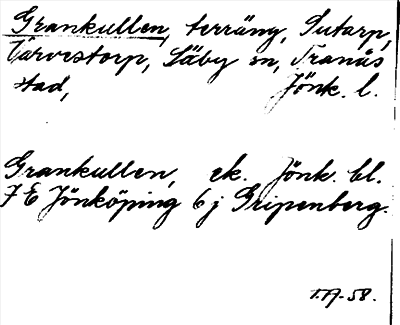 Grankullen, terräng, Sutarp,
Varvestorp, Säby sn, Tranås
stad, Jönk. l.
Grankullen, ek. Jönk. bl.
7 E Jönköping 6 j Gripenberg.
T.A-58.